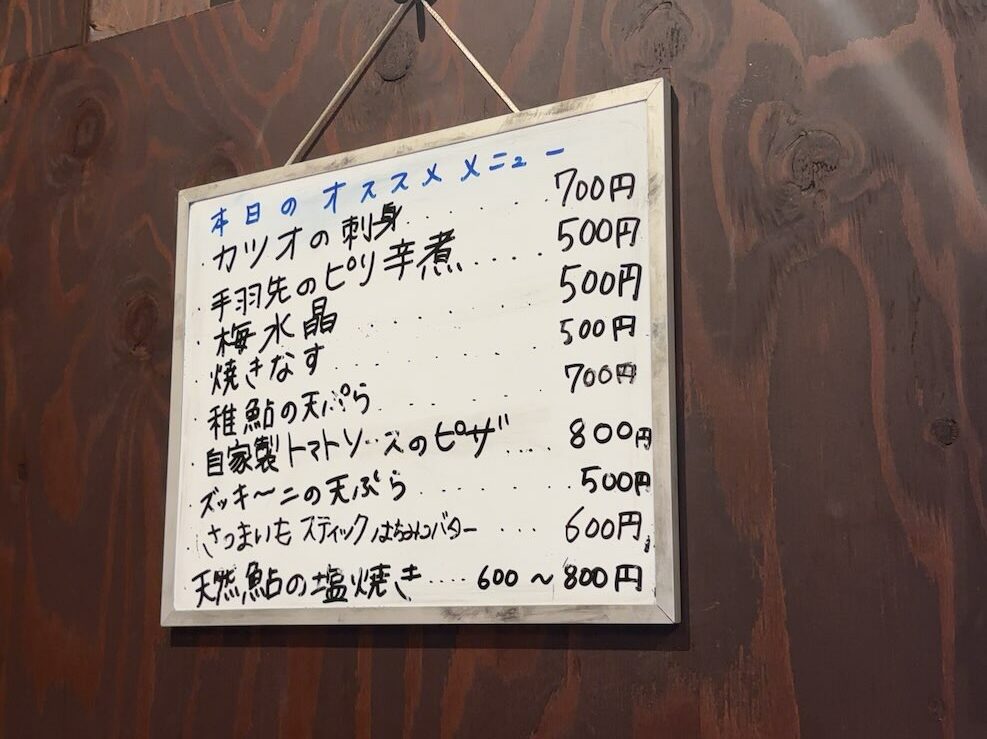 本日のオススメメニュー
・カツオの刺身........700円
・手羽先のピリ辛煮....500円
・梅水晶........500円
・焼きなす........500円
・稚鮎の天ぷら........700円
・自家製トマトソースのピザ...800円
・ズッキーニの天ぷら........500円
・さつまいもスティックはちみつバター....600円
天然鮎の塩焼き....600〜800円